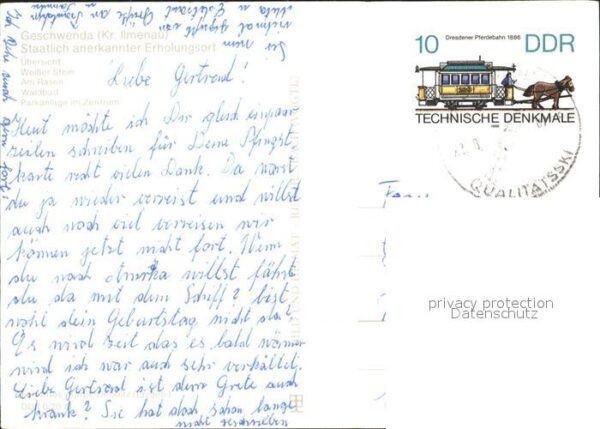 Geschwenda (Kr. Ilmenau)
Staatlich anerkannter Erholungsort
Übersicht
Weißer Stein
Am Rasen
Waldbad
Parkanlage im Zentrum
10 Dresdener Pferdebahn 1886 DDR
TECHNISCHE DENKMALE
1986
QUALITÄTSSKI
Liebe Gertrud!
Heut möchte ich Dir gleich ein paar
zeilen schreiben für Deine Pfingst
karte recht vielen Dank. Da warst
du ja wieder verreist und willst
auch noch viel verreisen wir
können jetzt nicht fort. Wenn
du nach Amerika willst fährst
du da mit dem Schiff? bist
wohl dein Geburtstag nicht da?
Es wird zeit das es bald wärmer
wird ich war auch sehr verkältet.
Liebe Gertrud ist denn Grete auch
krank? Sie hat doch schon lange
nicht geschrieben
Sei nun
vielmal gegrüßt von
Grüße an
Ich
auch gern fort!
Frau
privacy protection
Datenschutz